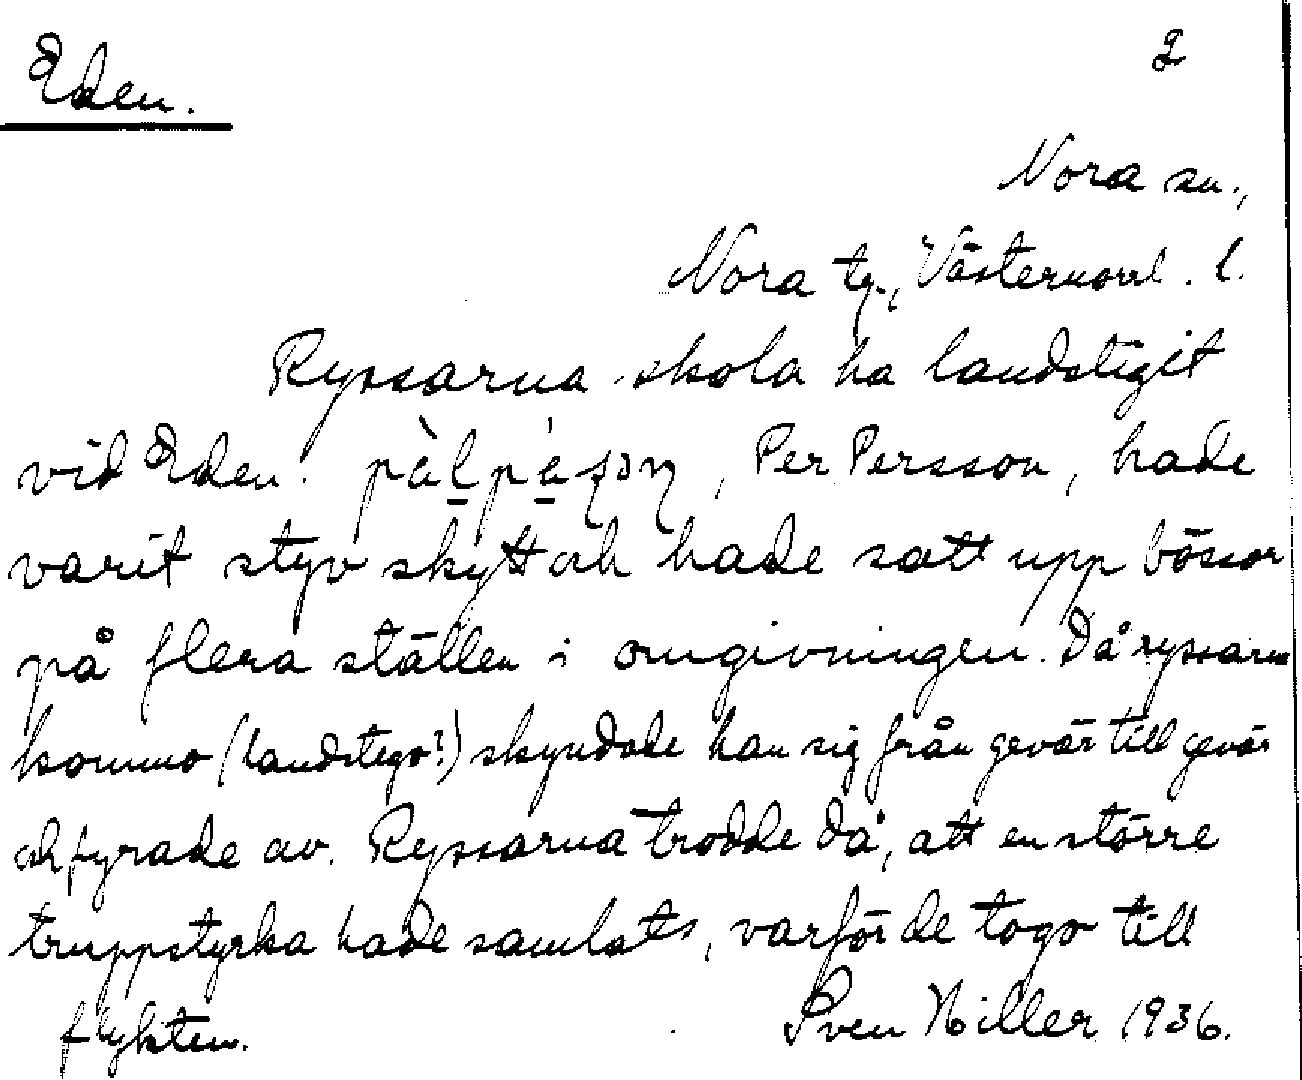 Eden.
2
Nora sn.,
Nora tg., Västernorrl. l.
Ryssarna skola ha landstigit
vid Eden. , Per Persson, hade
varit styv skytt och hade satt upp bössor
på flera ställen i omgivningen. Då ryssarna
kommo (landstego?) skyndade han sig från gevär till gevär
och fyrade av. Ryssarna trodde då, att en större
truppstyrka hade samlats, varför de togo till
flykten.
Sven Hiller 1936.